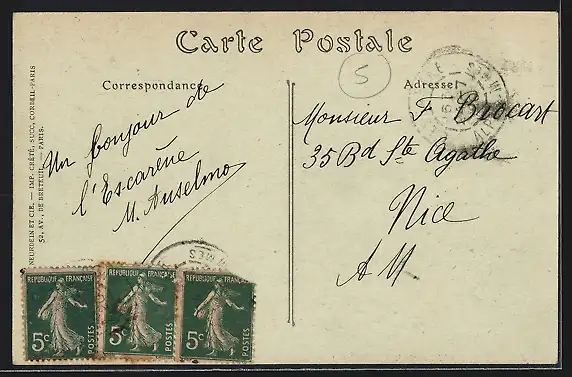 Carte Postale
5
Correspondance
Adresse
Un bonjour de
l'Escarène
M. Anselmo
Monsieur F Brocart
35 Bd Ste Agathe
Nice
A M
NEURDEIN ET CIE. — IMP. CRÉTÉ, SUCC. CORBEIL-PARIS
52, AV. DE BRETEUIL, PARIS.
REPUBLIQUE FRANÇAISE
5c
POSTES
REPUBLIQUE FRANÇAISE
5c
POSTES
REPUBLIQUE FRANÇAISE
5c
POSTES